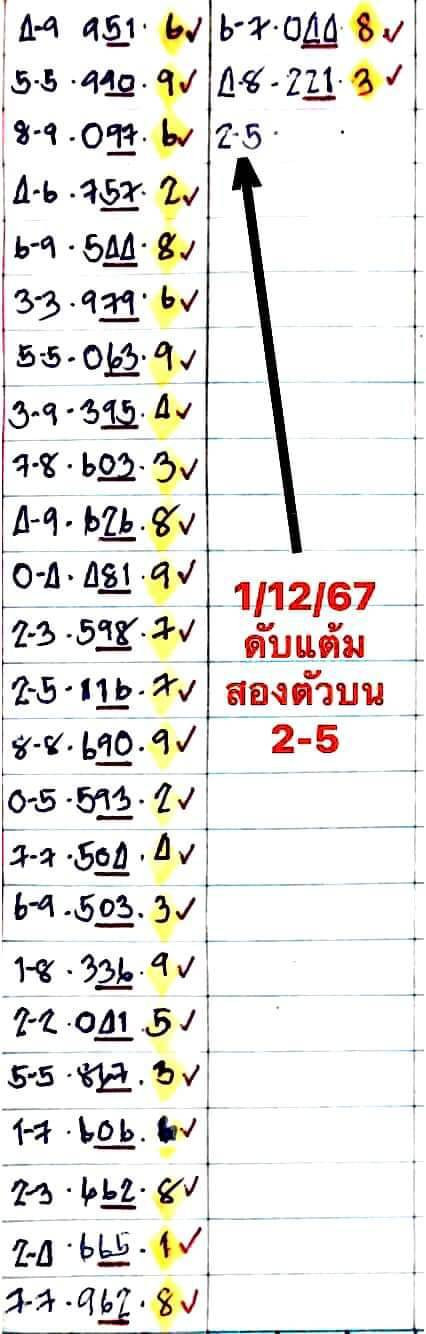 4-9 951 · 6 ✓
5-5 · 990 · 9 ✓
8-9 · 097 · 6 ✓
4-6 · 757 · 2 ✓
6-9 · 544 · 8 ✓
3-3 · 979 · 6 ✓
5-5 · 063 · 9 ✓
3-9 · 395 · 4 ✓
7-8 · 603 · 3 ✓
4-9 · 626 · 8 ✓
0-4 · 481 · 9 ✓
2-3 · 598 · 7 ✓
2-5 · 116 · 7 ✓
8-8 · 690 · 9 ✓
0-5 · 593 · 2 ✓
7-7 · 504 · 4 ✓
6-9 · 503 · 3 ✓
1-8 · 336 · 9 ✓
2-2 · 041 5 ✓
5-5 · 867 · 3 ✓
1-7 · 606 · 6 ✓
2-3 · 662 · 8 ✓
2-4 · 665 · 1 ✓
7-7 · 962 · 8 ✓
6-7 · 044 8 ✓
4-8 - 221 · 3 ✓
2-5 ·
1/12/67
ดับแต้ม
สองตัวบน
2-5